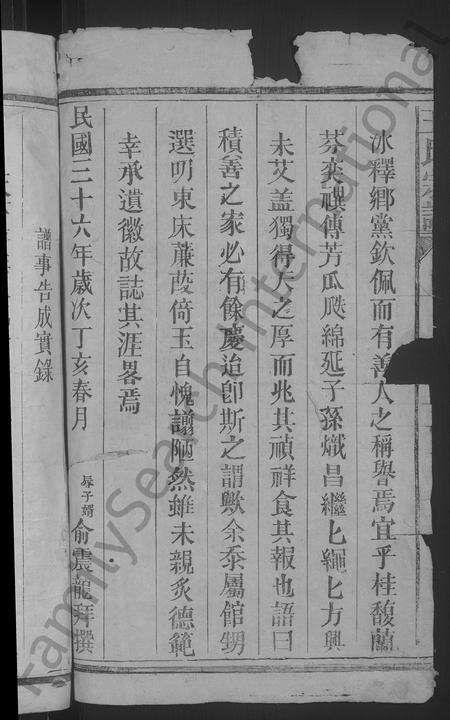 冰釋鄉黨欽佩而有善人之稱譽焉宜乎桂馥蘭
芬奕禩傳芳瓜瓞綿延子孫熾昌繼匕繩匕方興
未艾盖獨得天之厚而兆其禎祥食其報也語曰
積善之家必有餘慶迨卽斯之謂歟余忝屬館甥
選叨東床蒹葭倚玉自愧譾陋然雖未親炙德範
幸承遺徽故誌其涯畧焉
民國三十六年歲次丁亥春月
辱子婿俞震龍拜撰
譜事告成實錄
FamilySearch International